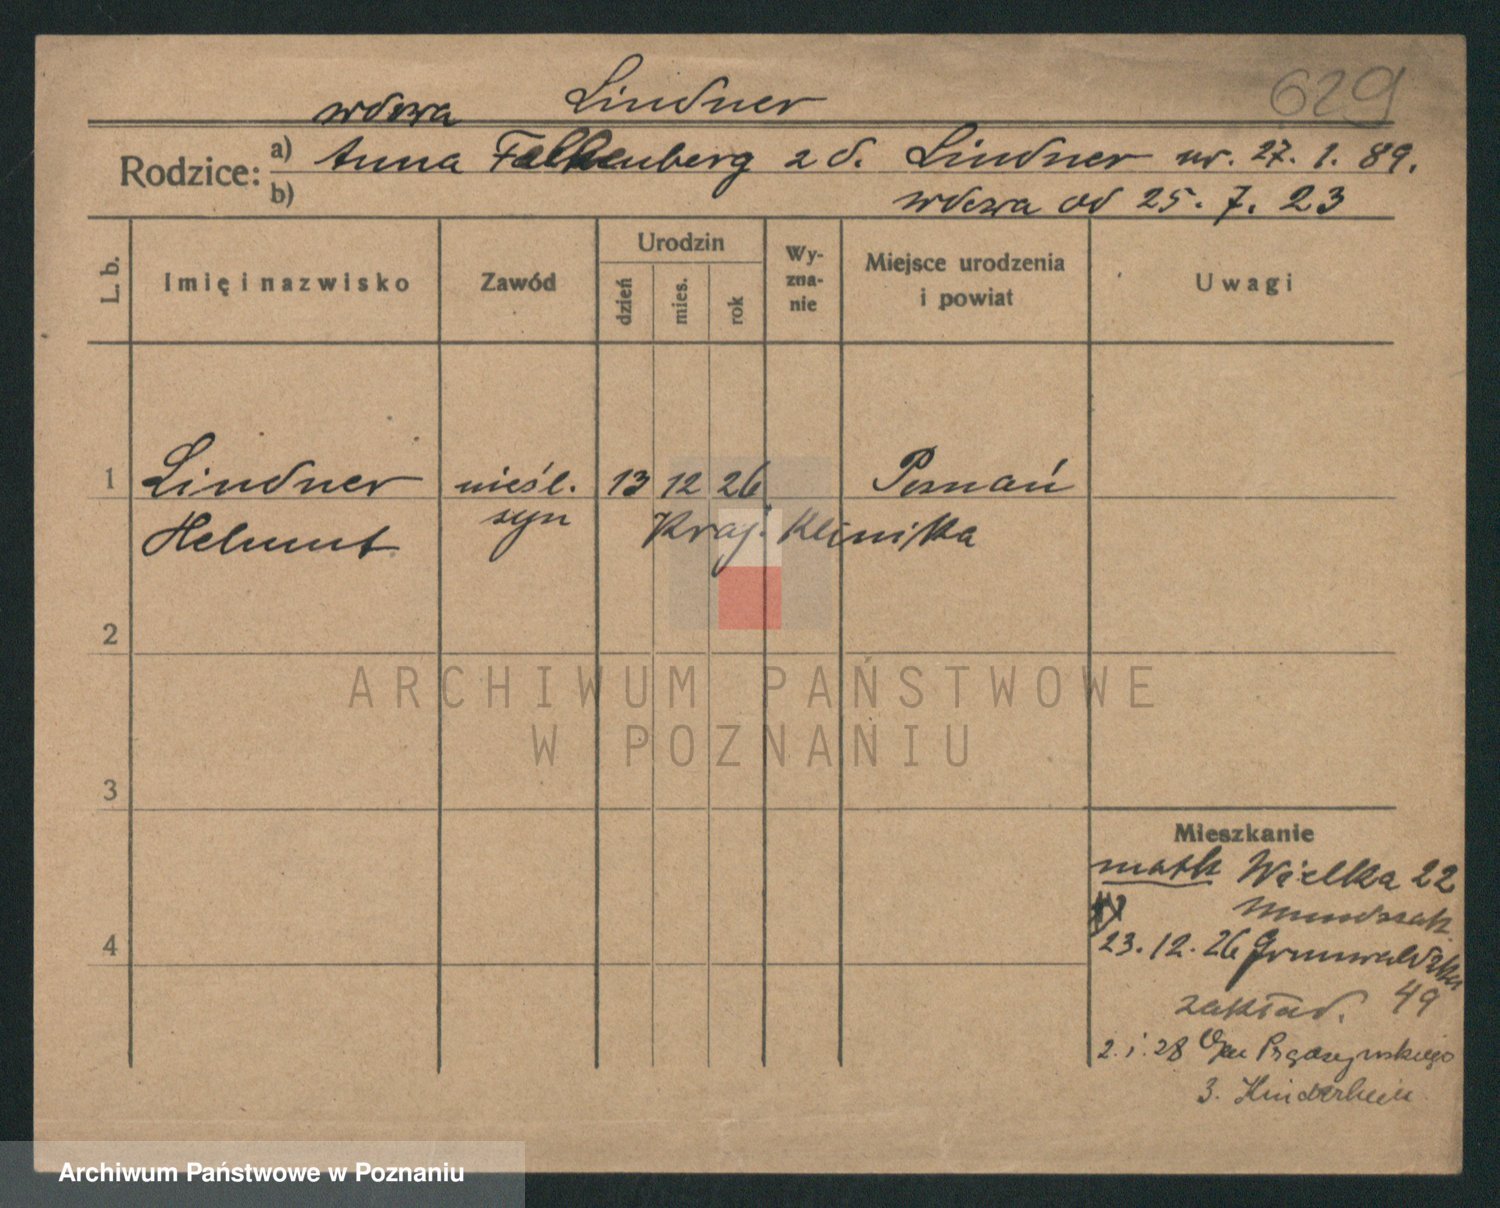 629
wdowa Lindner
Rodzice: a) Anna Falkenberg z d. Lindner ur. 27. 1. 89.
b) wdowa od 25. 7. 23
L. b. Imię i nazwisko Zawód Urodzin dzień mies. rok Wyznanie Miejsce urodzenia i powiat Uwagi
1 Lindner nieśl. 13 12 26 Poznań
Helmut syn Kraj. Klinika
2
3
4
Mieszkanie
matk Wielka 22
23. 12. 26 Grunwaldzka
zakład. 49
2. 1. 28
3. Kinderheim
ARCHIWUM PAŃSTWOWE
W POZNANIU
Archiwum Państwowe w Poznaniu